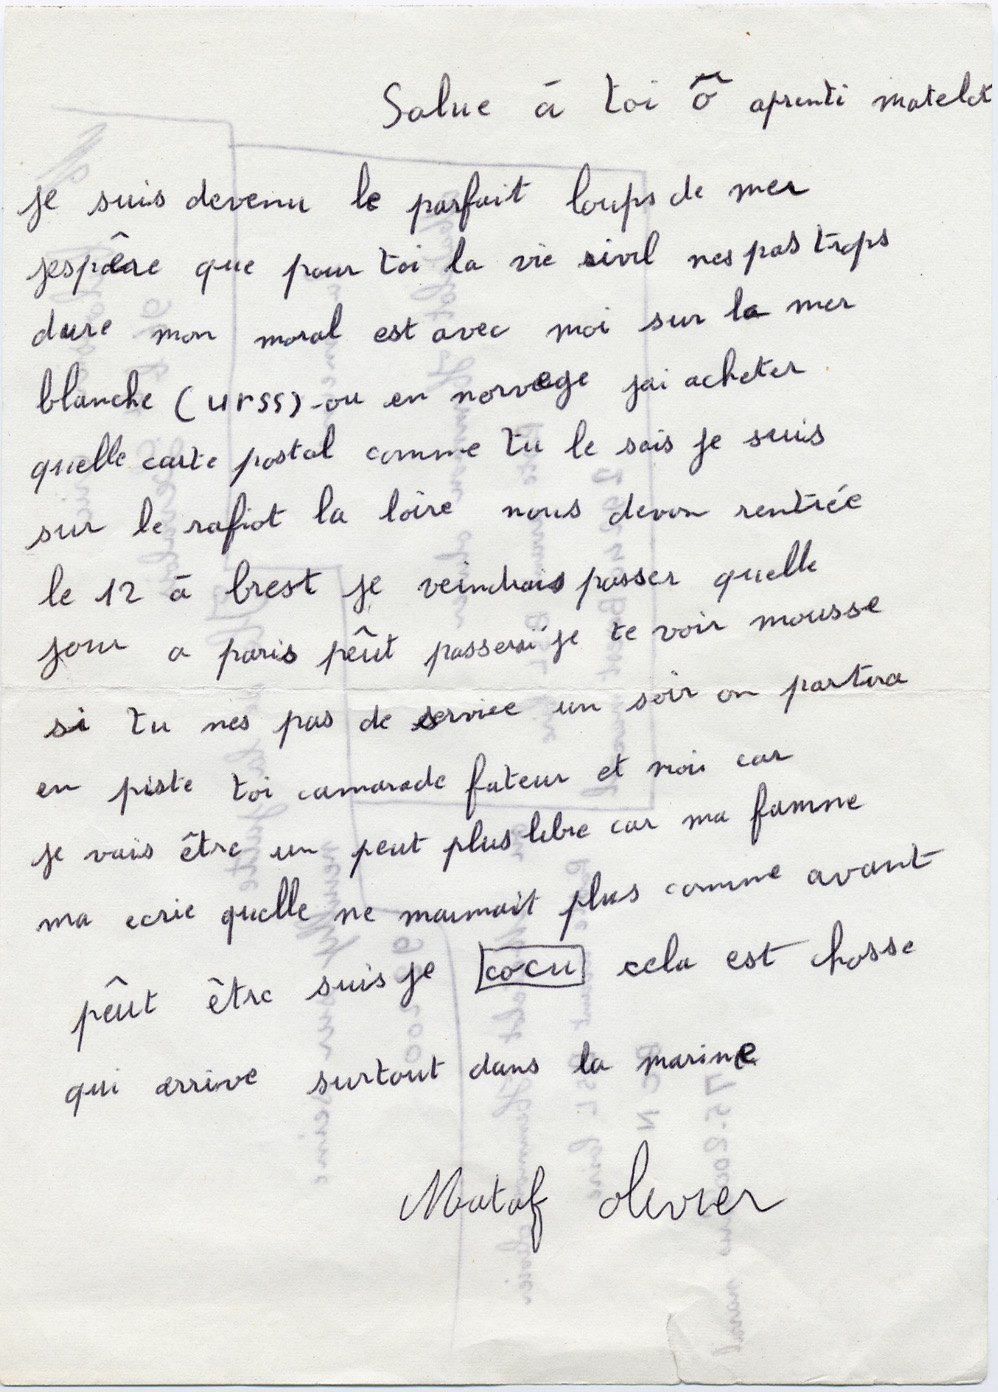 Salue à toi õ aprenti matelot
je suis devenu le parfait loups de mer
jespêre que pour toi la vie sivil nes pas trops
dure mon moral est avec moi sur la mer
blanche (urss) ou en norvege jai acheter
quelle carte postal comme tu le sais je suis
sur le rafiot la loire nous devon rentrée
le 12 à brest je veindrais passer quelle
jour a paris pêut passerai je te voir mousse
si tu nes pas de service un soir on partira
en piste toi camarade fateur et moi car
je vais être un peut plus libre car ma famne
ma ecrie quelle ne maimait plus comme avant
pêut être suis je cocu cela est chosse
qui arrive surtout dans la marine
Mataf olivier